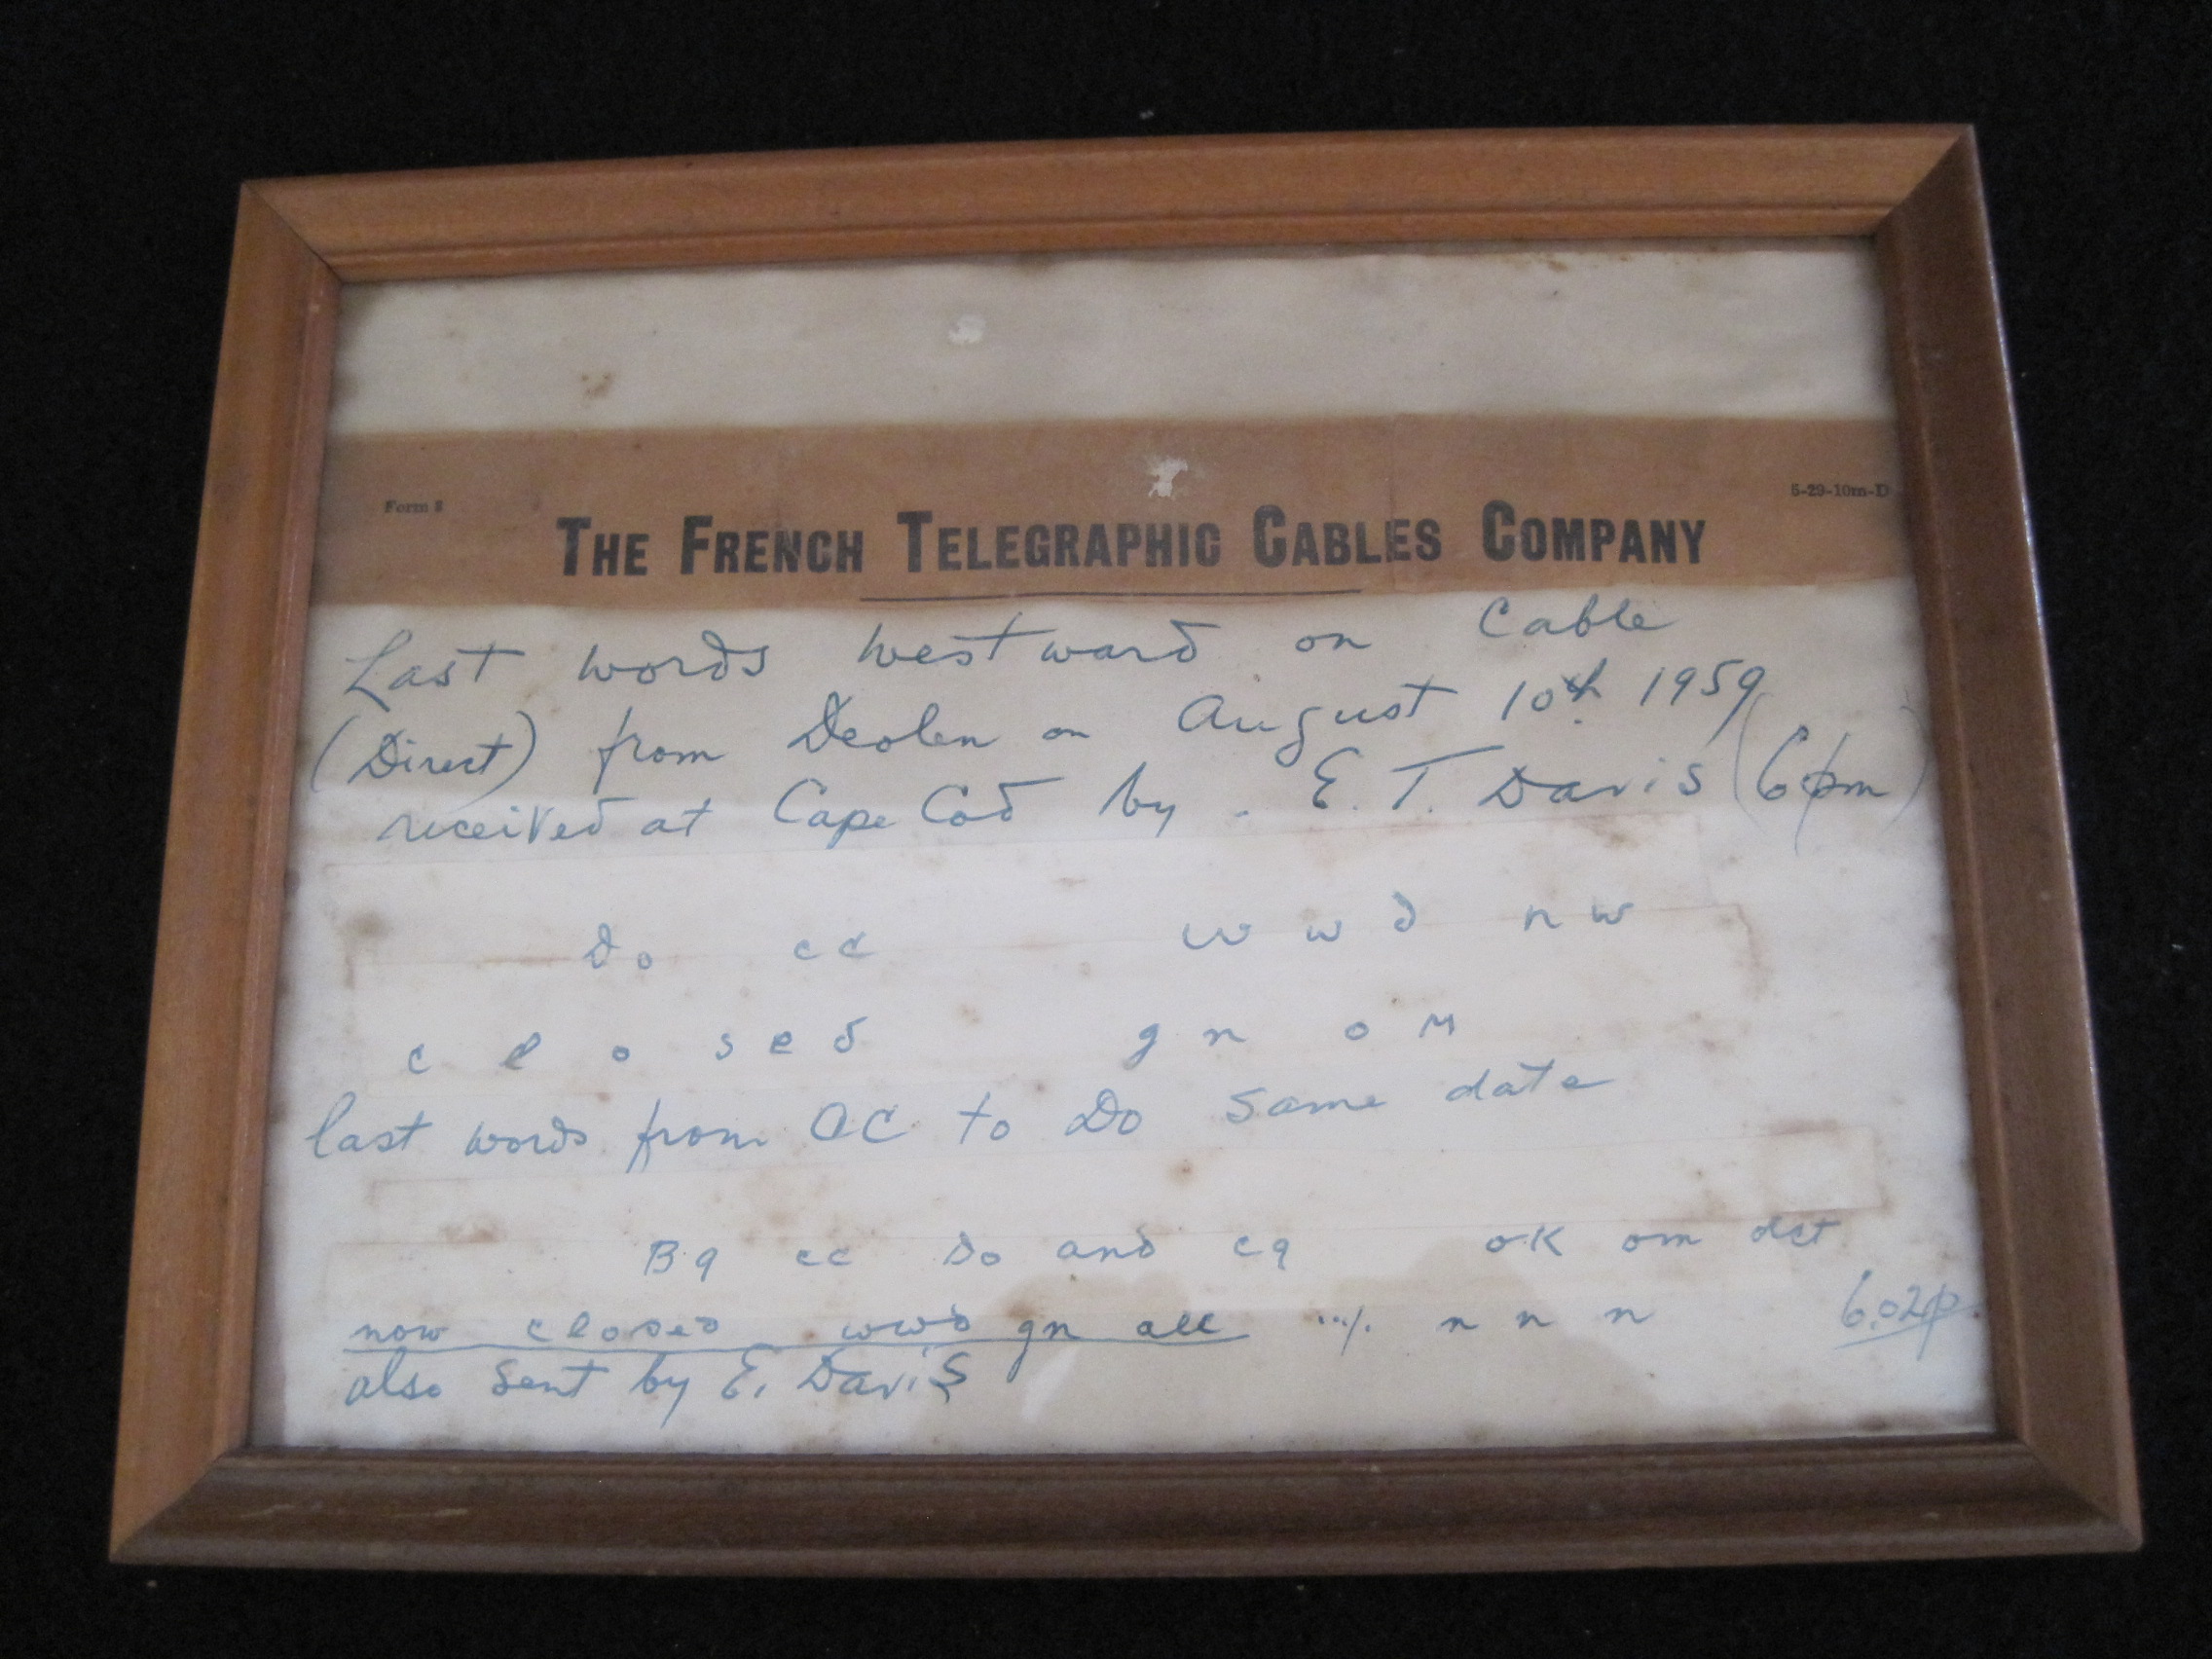 Form 8
5-29-10m-D
THE FRENCH TELEGRAPHIC CABLES COMPANY
Last words westward on Cable
(Direct) from Deolen on August 10th 1959
received at Cape Cod by E. T. Davis (6pm)
Do cc w w d n w
c l o s e d g n o m
last words from CC to Do same date
Bq cc Do and cq OK om dct
now closed wwd gn all n n n 6.02p
also sent by E. Davis